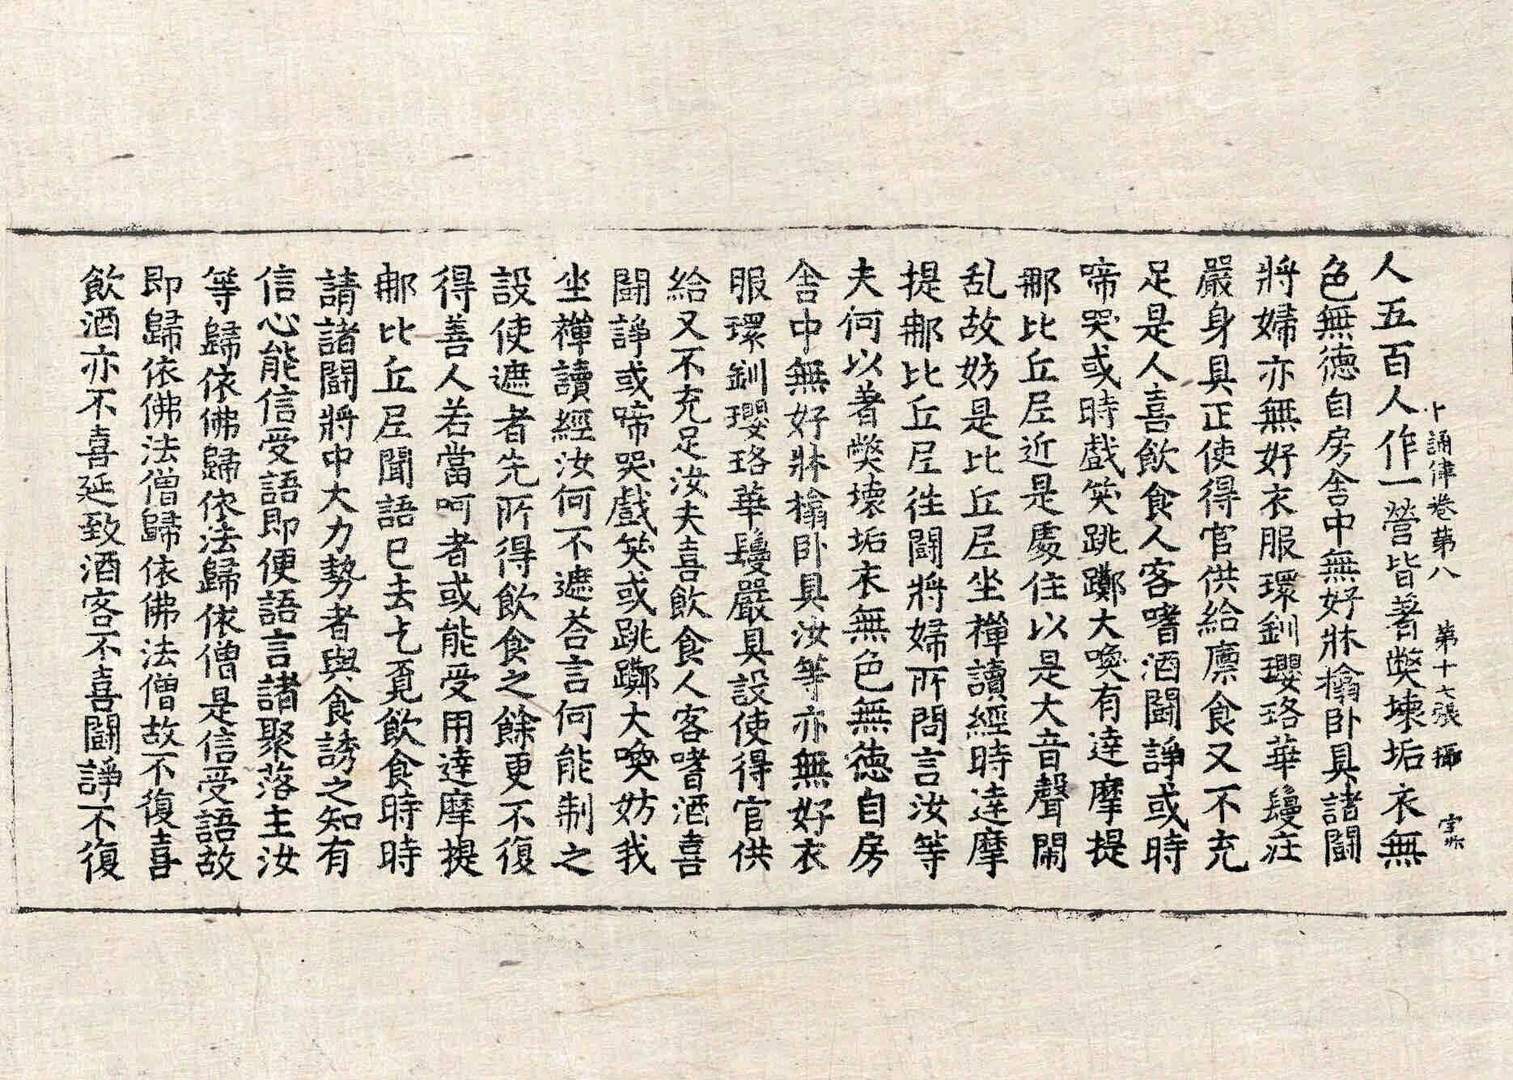 人五百人作一營皆著弊壊垢衣無
十誦律卷第八 第十七張 攝
色無德自房舍中無好牀榻卧具諸闘
將婦亦無好衣服環釧瓔珞華鬘莊
嚴身具正使得官供給廪食又不充
足是人喜飲食人客嗜酒闘諍或時
啼哭或時戲笑跳躑大喚有達摩提
那比丘尼近是處住以是大音聲閙
乱故妨是比丘尼坐禪讀經時達摩
提那比丘尼往闘將婦所問言汝等
夫何以著弊壊垢衣無色無德自房
舍中無好牀榻卧具汝等亦無好衣
服環釧瓔珞華鬘嚴具設使得官供
給又不充足汝夫喜飲食人客嗜酒喜
闘諍或啼哭戲笑或跳躑大喚妨我
坐禪讀經汝何不遮荅言何能制之
設使遮者先所得飲食之餘更不復
得善人若當呵者或能受用達摩提
那比丘尼聞語已去乞覔飲食時時
請諸闘將中大力勢者與食誘之知有
信心能信受語即便語言諸聚落主汝
等歸依佛歸依法歸依僧是信受語故
即歸依佛法僧歸依佛法僧故不復喜
飲酒亦不喜延致酒客不喜闘諍不復